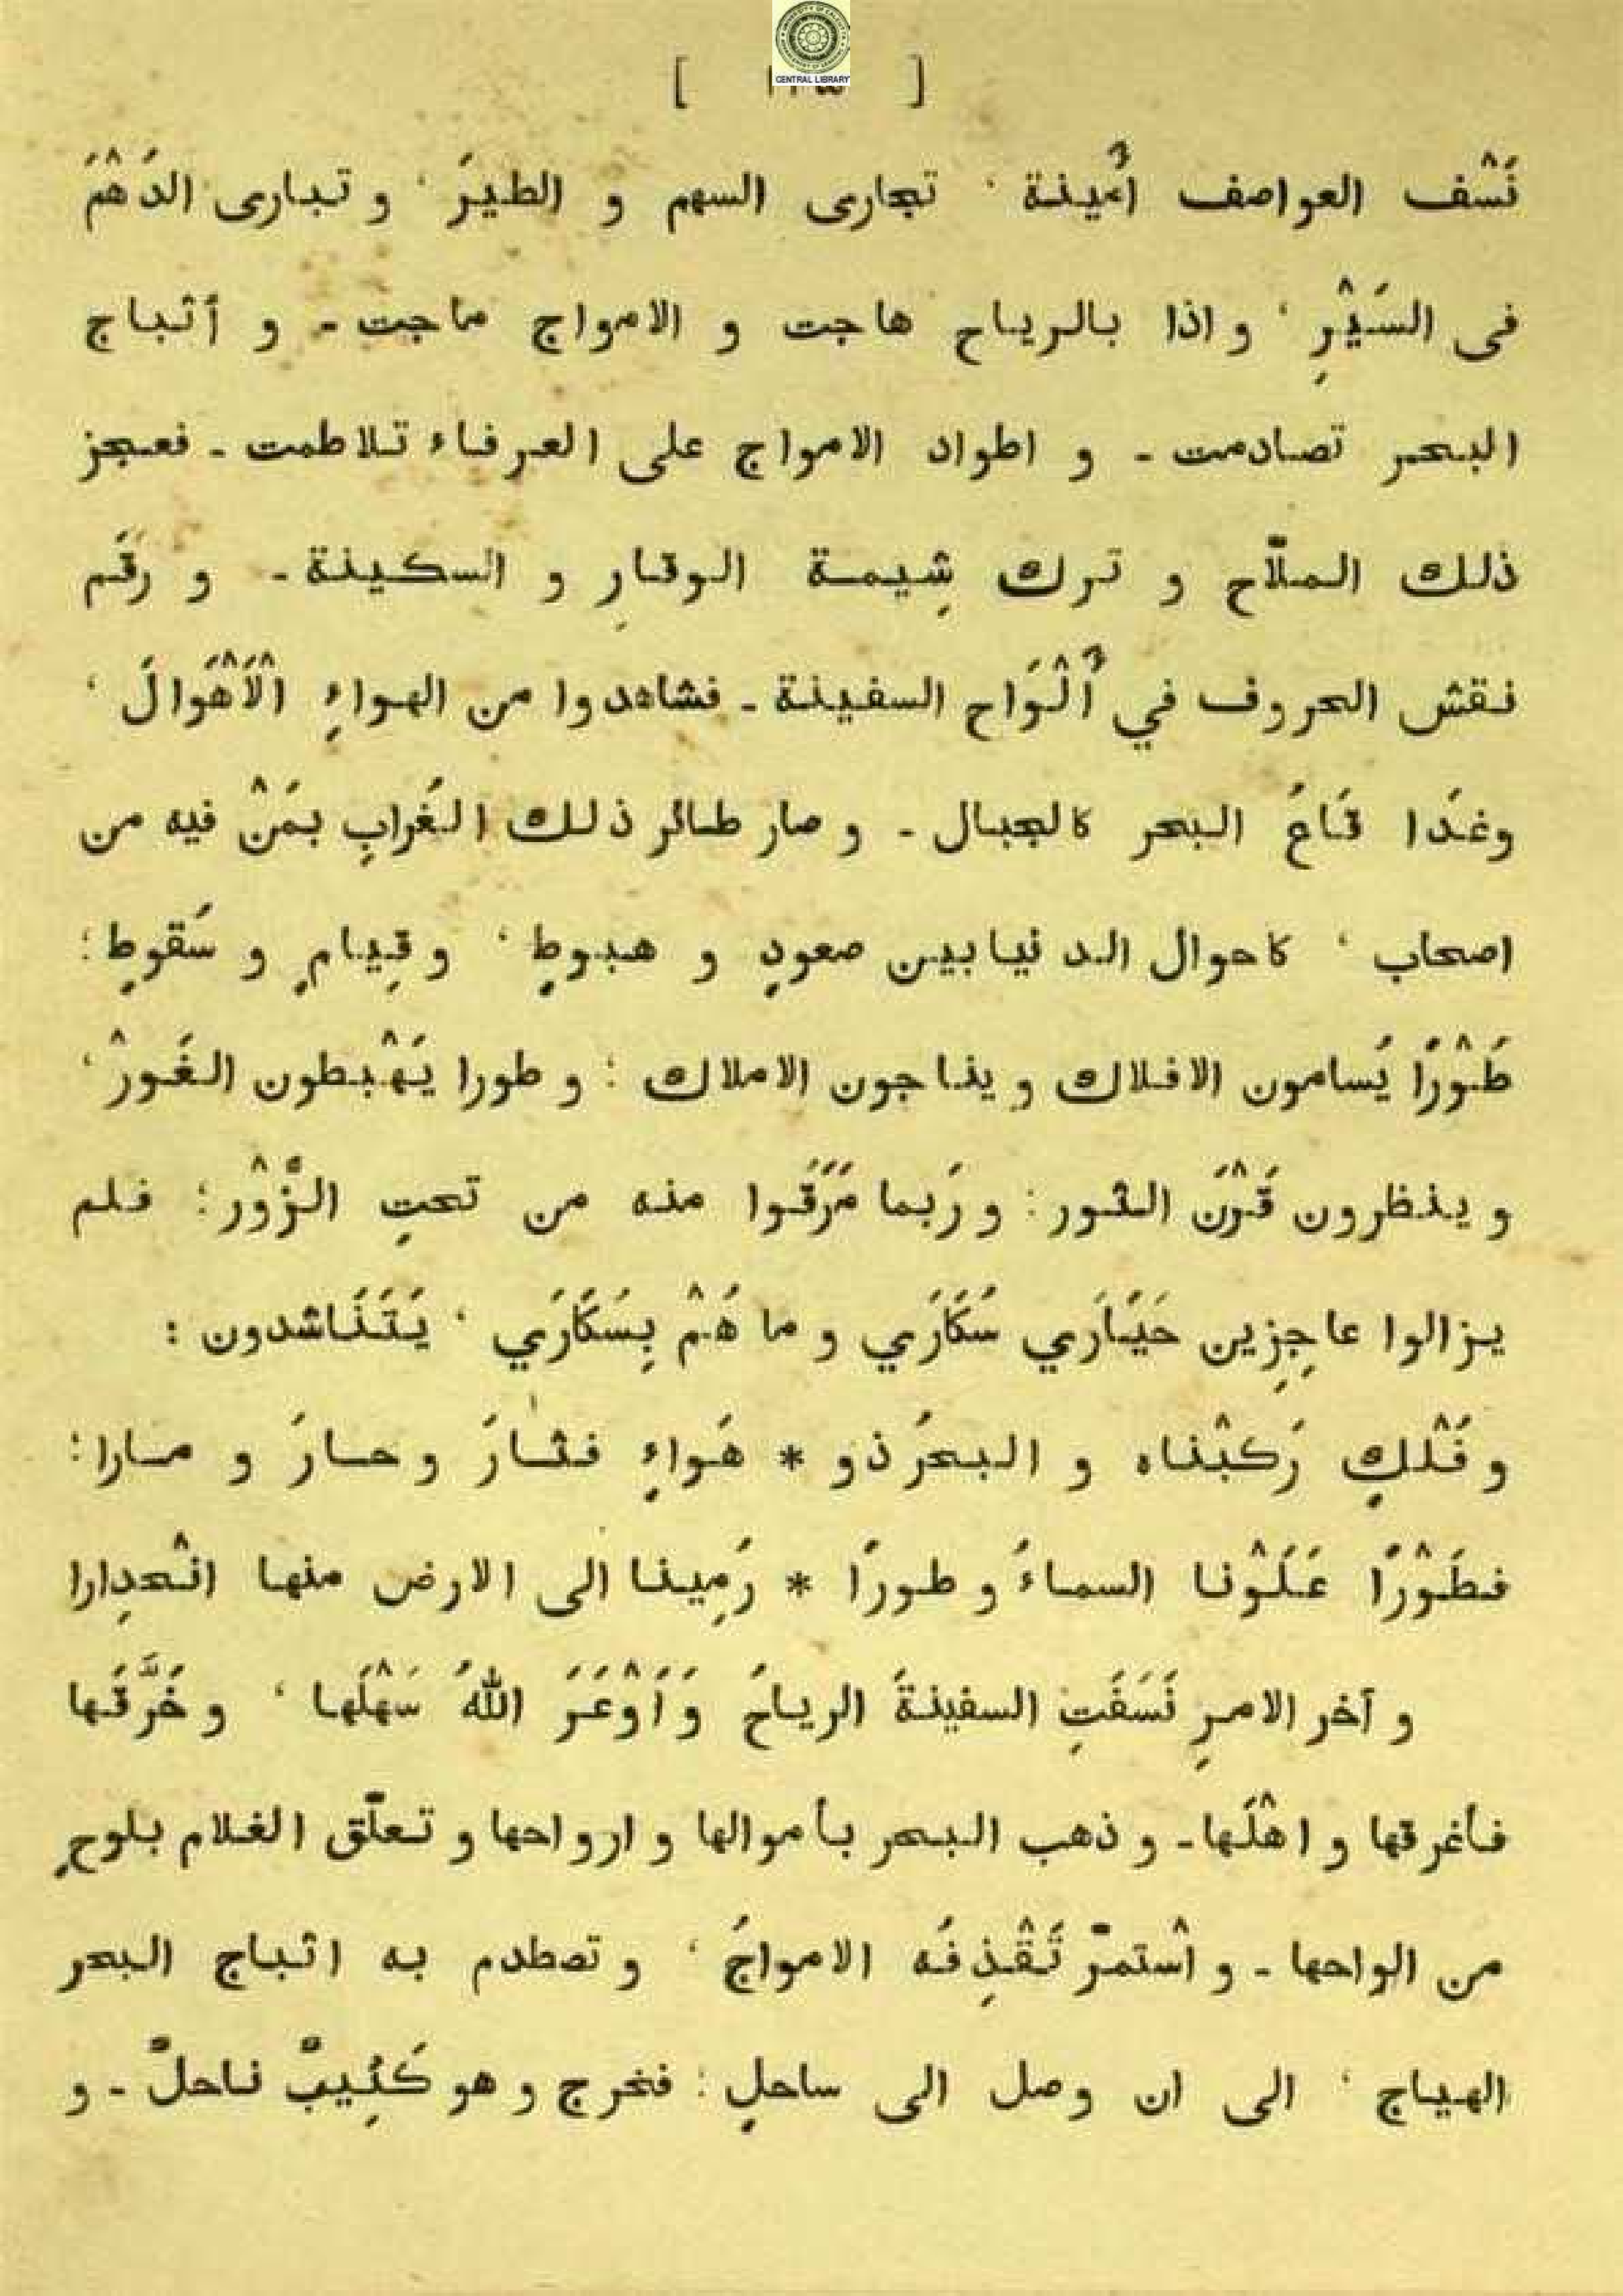 CENTRAL LIBRARY
نَسْف العواصف اَمينة ، تجارى السهم و الطيرَ ، و تبارى الدَهْمَ
فى السَيْرِ ، و اذا بالرياح هاجت و الامواج ماجت ـ و أثباج
البحر تصادمت ـ و اطواد الامواج على العرفاء تلاطمت ـ فعجز
ذلك الملّاح و ترك شِيمة الوقارِ و السكينة ـ و رَقَم
نقش الحروف في اَلْوَاح السفينة ـ فشاهدوا من الهواءِ الْاَهْوالَ ،
وغدَا قَاعُ البحر كالجبال ـ و صار طائر ذلك الغُرابِ بمَنْ فيه من
اصحاب ، كاحوال الدنيا بين صعودٍ و هبوطٍ ، و قِيامٍ و سُقوطٍ ؛
طَوْرًا يُسامون الافلاك و يناجون الاملاك ؛ و طورا يَهْبطون الغَورْ ،
و ينظرون قَرْنَ الثور ؛ و رُبما مَرَقُوا منه من تحتِ الزَّوْر ؛ فلم
يزالوا عاجِزِين حَيَارَي سُكَارَي و ما هُمْ بِسُكَارَي ، يَتَنَاشدون :
و فُلْكٍ رَكبْناه و البحرُ ذو * هَواءٍ فثارَ و حارَ و مارا ؛
فطَوْرًا عَلَوْنا السماءُ و طورًا * رُمِينا الى الارض منها انْحدِارا
و آخر الامرِ نَسَفَتِ السفينةَ الرياحُ وَ اَوْعَرَ اللهُ سَهْلَها ، و خَرَّقَها
فأغرقها و اهْلَها ـ و ذهب البحر بأموالها و ارواحها و تعلّق الغلام بلوحٍ
من الواحها ـ و اسْتمرّ تَقْذِفُه الامواجُ ، و تصطدم به اثباج البحر
الهياج ، الى ان وصل الى ساحلٍ ؛ فخرج و هو كَئِيبٌ ناحلٌ ـ و